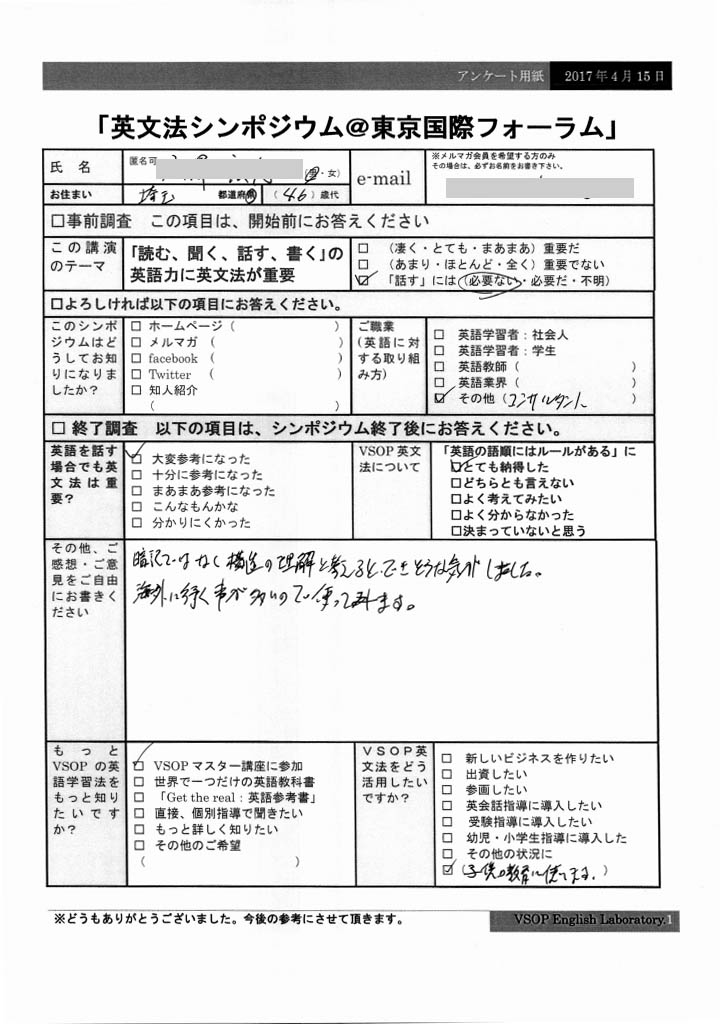 アンケート用紙 2017年4月15日
「英文法シンポジウム@東京国際フォーラム」
氏名 匿名可 (男・女) e-mail ※メルマガ会員を希望する方のみ
その場合は、必ずお名前をお書き下さい。
お住まい 埼玉 都道府県 (46)歳代
□事前調査 この項目は、開始前にお答えください
この講演のテーマ
「読む、聞く、話す、書く」の
英語力に英文法が重要
□ (凄く・とても・まあまあ)重要だ
□ (あまり・ほとんど・全く)重要でない
☑ 「話す」には(必要ない・必要だ・不明)
□よろしければ以下の項目にお答えください。
このシンポ
ジウムはど
うしてお知
りになりま
したか?
□ ホームページ( )
□ メルマガ ( )
□ facebook ( )
□ Twitter ( )
□ 知人紹介
( )
ご職業
(英語に対
する取り組
み方)
□ 英語学習者:社会人
□ 英語学習者:学生
□ 英語教師( )
□ 英語業界( )
☑ その他(コンサルタント )
□ 終了調査 以下の項目は、シンポジウム終了後にお答えください。
英語を話す
場合でも英
文法は重
要?
☑ 大変参考になった
□ 十分に参考になった
□ まあまあ参考になった
□ こんなもんかな
□ 分かりにくかった
VSOP英文
法について
「英語の語順にはルールがある」に
☑とても納得した
□どちらとも言えない
□よく考えてみたい
□よく分からなかった
□決まっていないと思う
その他、ご
感想・ご意
見をご自由
にお書きく
ださい
暗記ではなく構造の理解と考えるとできそうな気がしました。
海外に行く事が多いので使ってみます。
もっと
VSOPの英
語学習法を
もっと知り
たいです
か?
☑ VSOPマスター講座に参加
□ 世界で一つだけの英語教科書
□ 「Get the real:英語参考書」
□ 直接、個別指導で聞きたい
□ もっと詳しく知りたい
□ その他のご希望
( )
VSOP英
文法をどう
活用したい
ですか?
□ 新しいビジネスを作りたい
□ 出資したい
□ 参画したい
□ 英会話指導に導入したい
□ 受験指導に導入したい
□ 幼児・小学生指導に導入した
□ その他の状況に
☑ (子供の教育に使います。)
※どうもありがとうございました。今後の参考にさせて頂きます。
VSOP English Laboratory.1